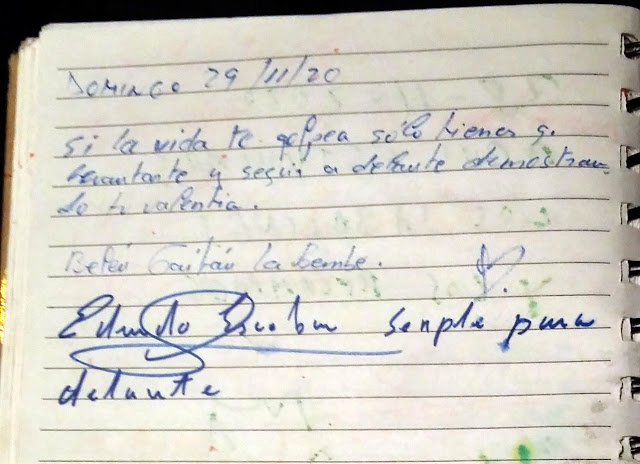 Domingo 29/11/20
Si la vida te golpea sólo tienes q.
levantarte y seguir a delante demostran-
do tu valentia.
Belén Gaitán la bembe.
Eduardo Escobar Semple para
delante